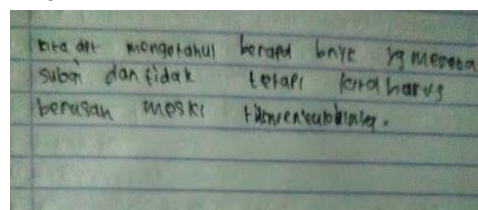 kita dpt mengetahui berapa bnyk yg mereka
subai dan tidak tetapi kita harus
berusah meski